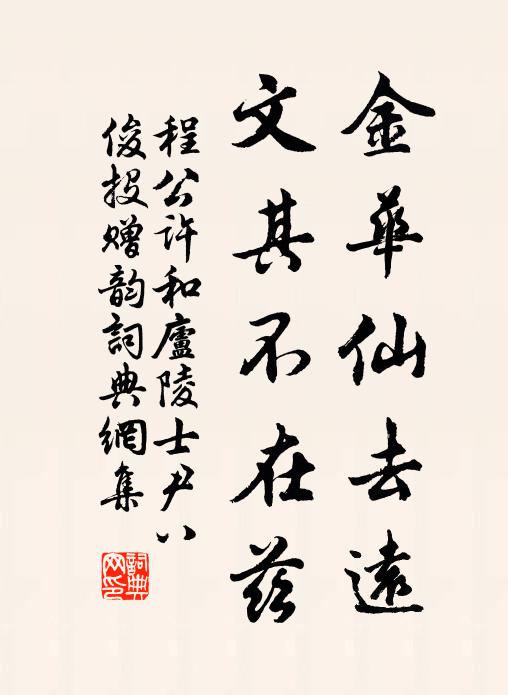 金華仙去遠
文其不在茲
程公許和廬陵士尹八
俊投贈韵詞典網集
詞典網印